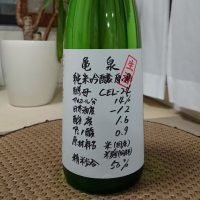 亀泉
生
純米吟醸原酒
酵母 CEL-24
アルコール分 14%
日本酒度 -12
酸度 1.6
アミノ酸 0.9
原材料名 米(国産)
米麹(国産米)
精米歩合 50%